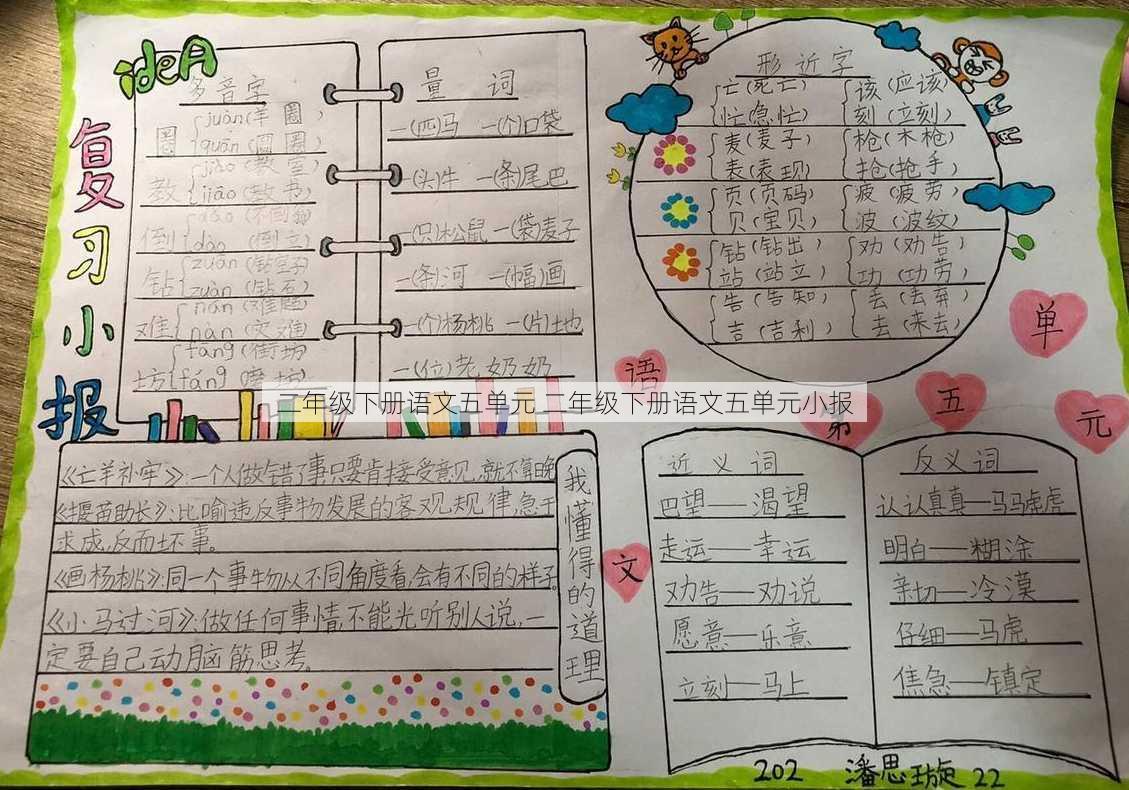 ideA
复习小报
多音字
圈{juàn(羊圈)
quān(圆圈)
教{jiào(教室)
jiāo(教书)
倒{dǎo(不倒翁)
dào(倒立)
钻{zuān(钻空子)
zuàn(钻石)
难{nán(难题)
nàn(灾难)
坊{fāng(街坊)
fáng(磨坊)
量词
一(匹)马 一(个)口袋
一(头)牛 一(条)尾巴
一(只)松鼠 一(袋)麦子
一(条)河 一(幅)画
一(个)杨桃 一(片)地
一(位)老奶奶
形近字
亡(死亡) 该(应该)
忙(急忙) 刻(立刻)
麦(麦子) 枪(木枪)
表(表现) 抢(抢手)
页(页码) 疲(疲劳)
贝(宝贝) 波(波纹)
钻(钻出) 劝(劝告)
站(站立) 功(功劳)
告(告知) 丢(丢弃)
吉(吉利) 去(来去)
语文
第五单元
二年级下册语文五单元 二年级下册语文五单元小报
我懂得的道理
《亡羊补牢》:一个人做错了事只要肯接受意见,就不算晚
《揠苗助长》:比喻违反事物发展的客观规律,急于
求成,反而坏事。
《画杨桃》:同一个事物从不同角度看,会有不同的样子。
《小马过河》:做任何事情,不能光听别人说,一
定要自己动脑筋思考。
近义词
巴望——渴望
走运——幸运
劝告——劝说
愿意——乐意
立刻——马上
反义词
认认真真—马马虎虎
明白——糊涂
亲切——冷漠
仔细——马虎
焦急——镇定
202 潘思璇 22